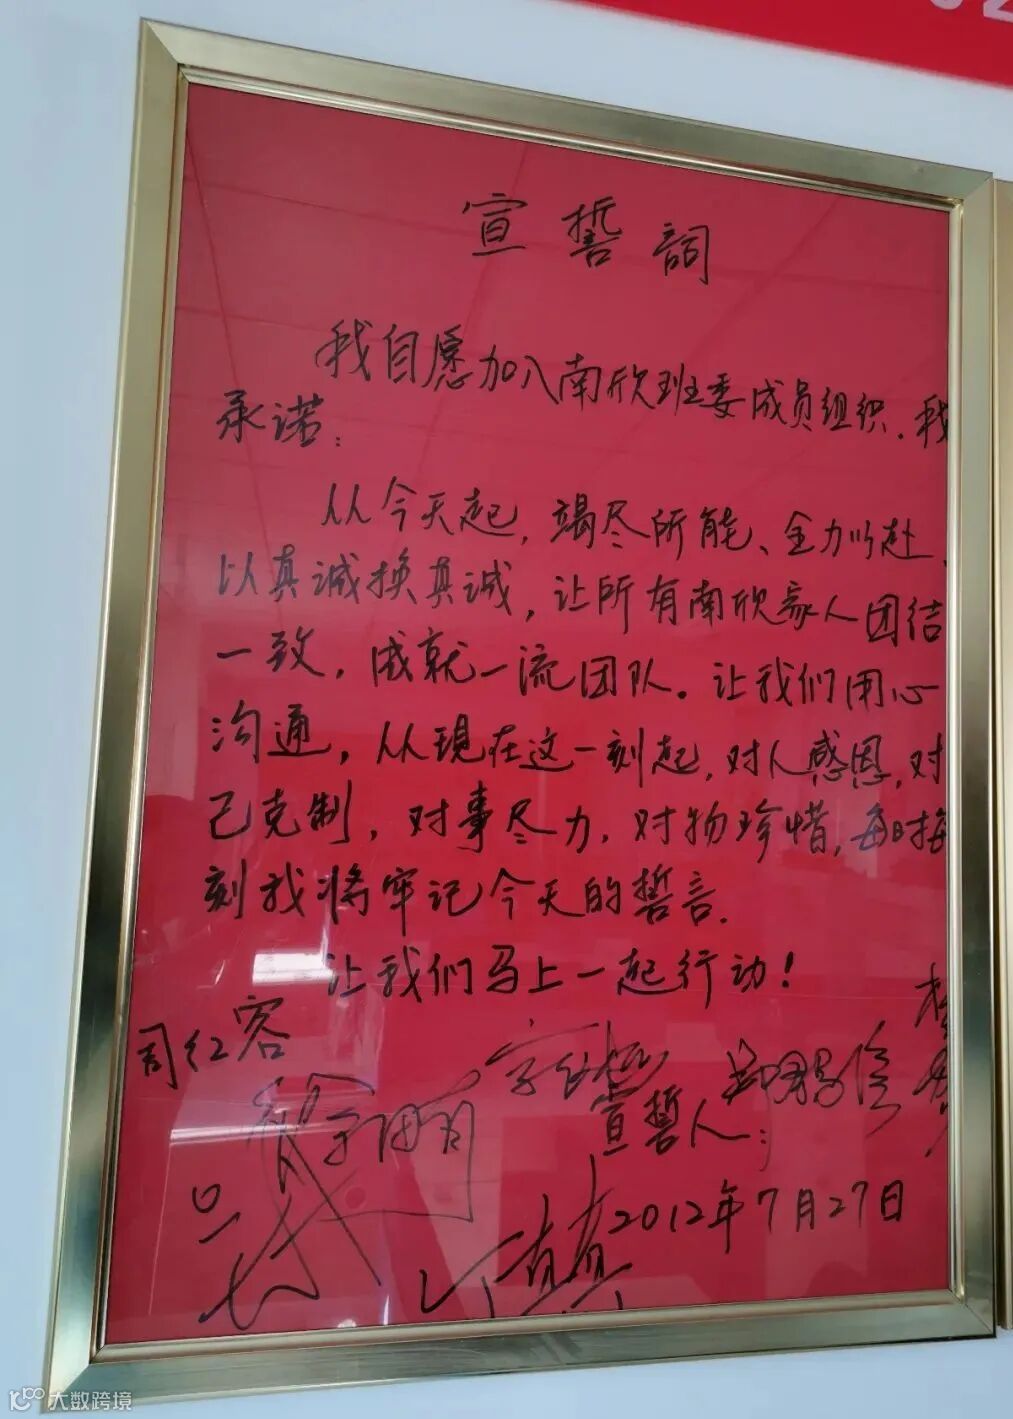 宣誓詞
我自愿加入南欣班委成员组织.我
承诺:
从今天起,竭尽所能、全力以赴、
以真诚换真诚,让所有南欣家人团结
一致,成就一流团队。让我们用心
沟通,从现在这一刻起,对人感恩,对
己克制,对事尽力,对物珍惜,每时每
刻我将牢记今天的誓言.
让我们马上一起行动!
周红容
宣誓人:
2012年7月27日
大数跨境